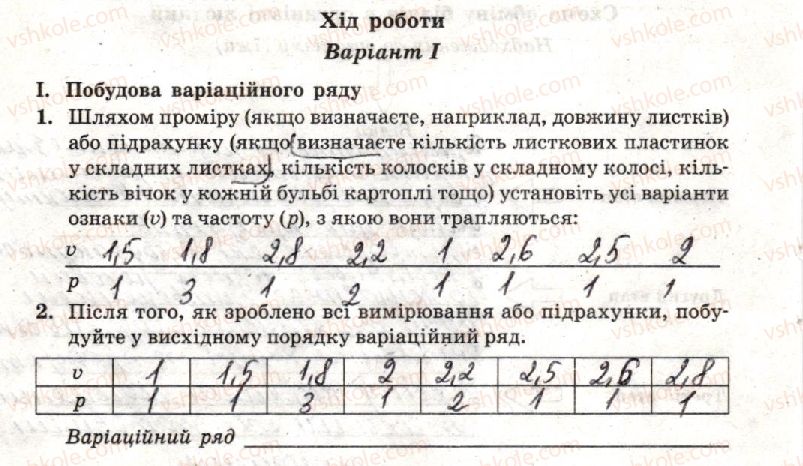 Хід роботи
Варіант I
I. Побудова варіаційного ряду
1. Шляхом проміру (якщо визначаєте, наприклад, довжину листків)
або підрахунку (якщо визначаєте кількість листкових пластинок
у складних листках, кількість колосків у складному колосі, кіль-
кість вічок у кожній бульбі картоплі тощо) установіть усі варіанти
ознаки (v) та частоту (p), з якою вони трапляються:
v 1,5 1,8 2,8 2,2 1 2,6 2,5 2
p 1 3 1 2 1 1 1 1
2. Після того, як зроблено всі вимірювання або підрахунки, побу-
дуйте у висхідному порядку варіаційний ряд.
v 1 1,5 1,8 2 2,2 2,5 2,6 2,8
p 1 1 3 1 2 1 1 1
Варіаційний ряд